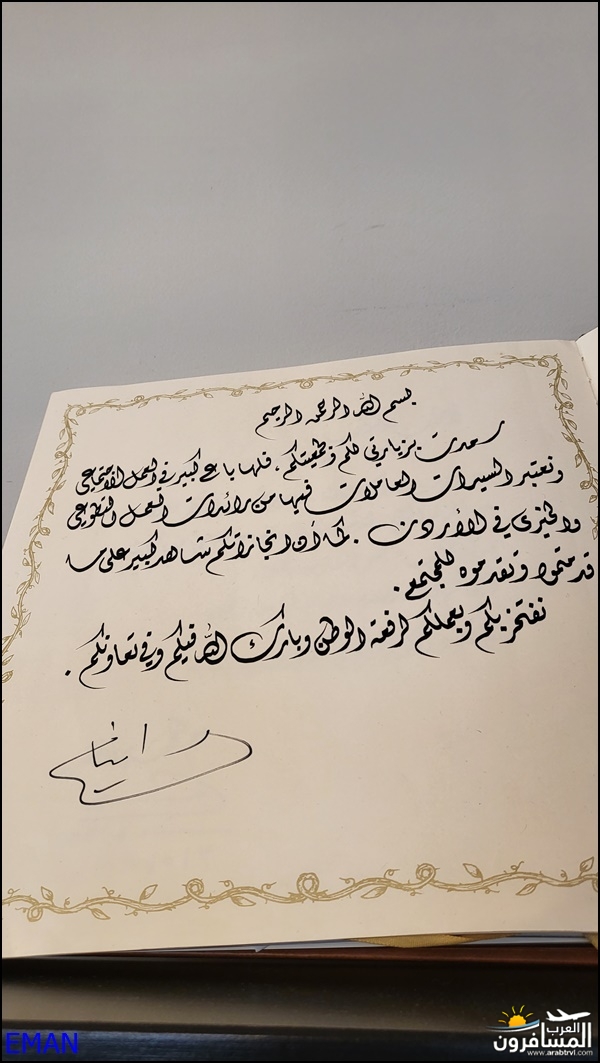 بسم الله الرحمن الرحيم
سعدت بزيارتي لكم ولجمعيتكم، فلها باع كبير في العمل الاجتماعي
ونعتبر السيدات العاملات فيها من رائدات العمل التطوعي
والخيري في الأردن. كما أن انجازاتكم شاهد كبير على ما
قدمتموه وتقدموه للمجتمع.
نفتخر بكم وبعملكم لرفعة الوطن وبارك الله فيكم وفي تعاونكم.
رانيا
EMAN
العرب
المسافرون
www.arabtrvl.com